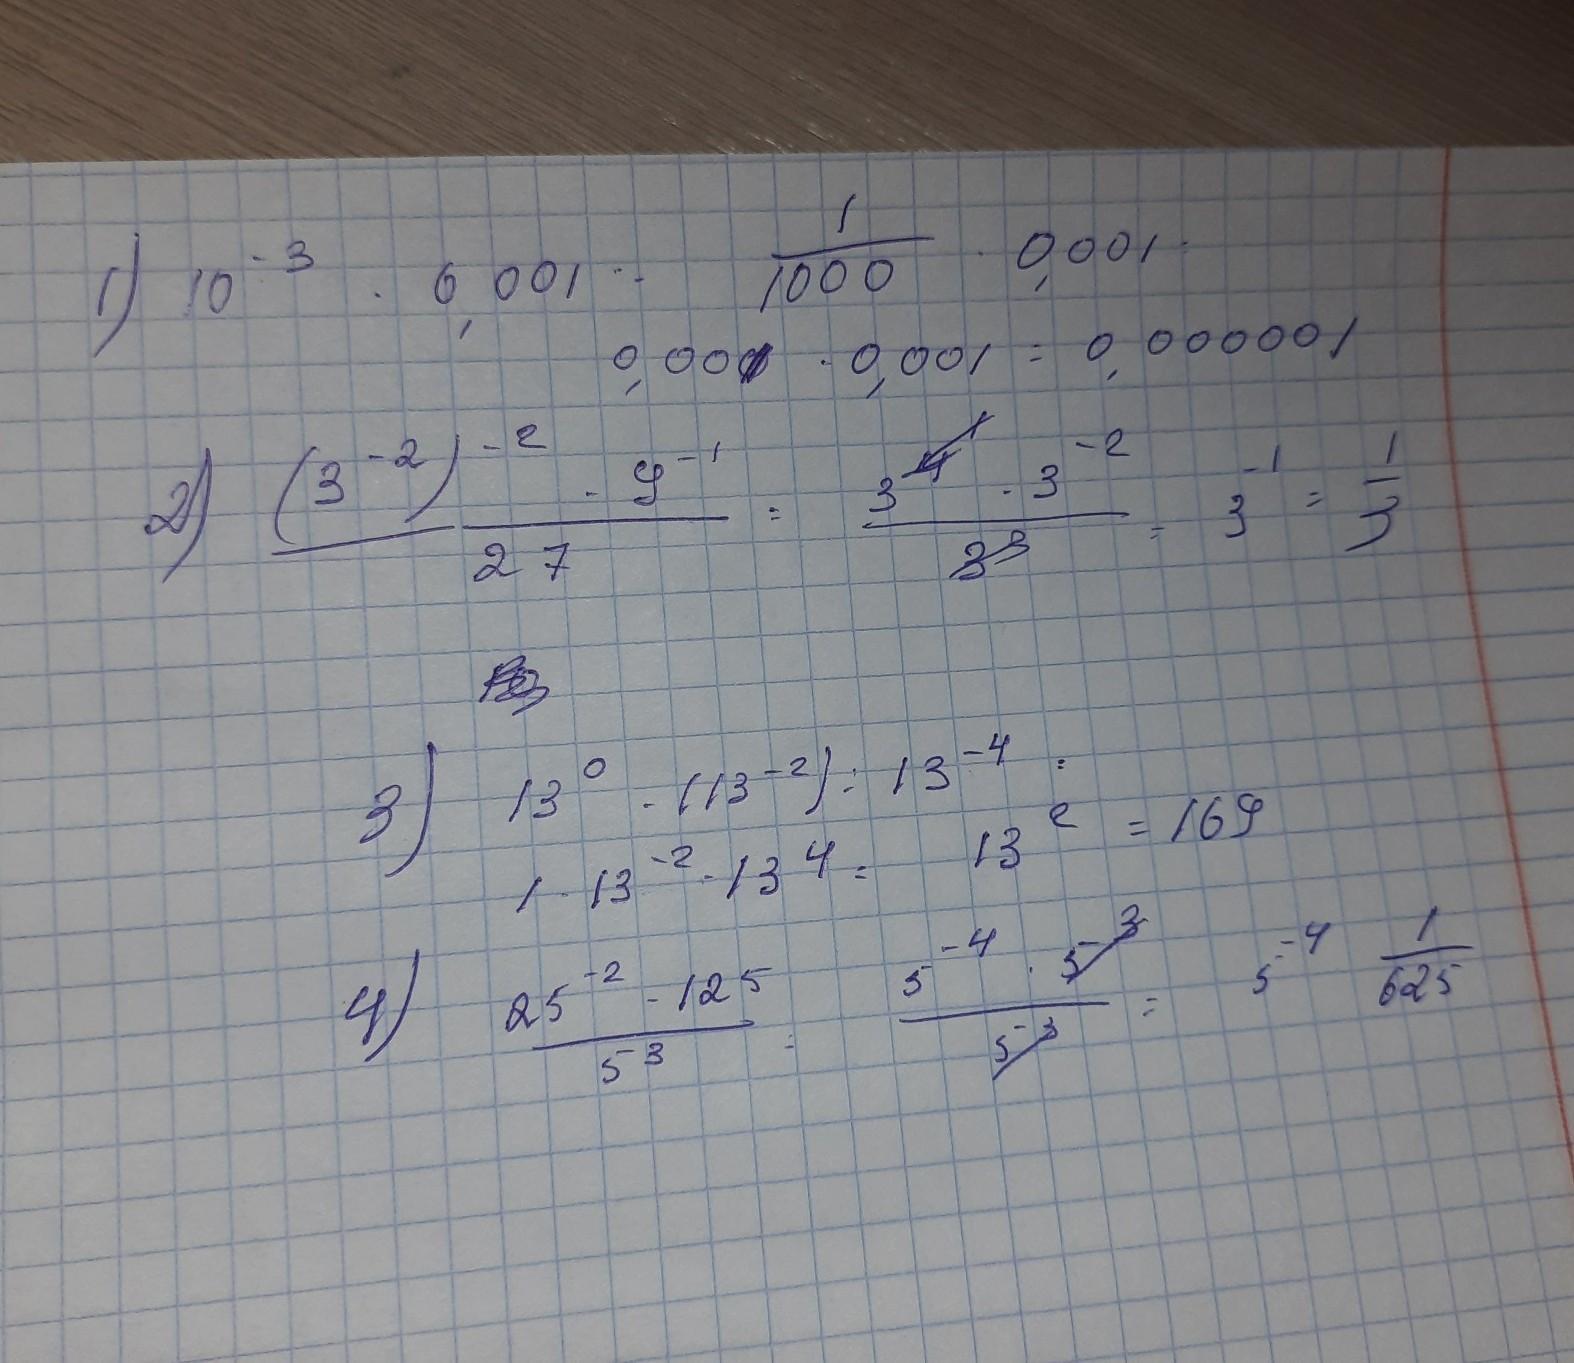 1) 10^{-3} · 0,001 = \frac{1}{1000} · 0,001 =
0,001 · 0,001 = 0,000001
2) \frac{(3^{-2})^{-2} · 9^{-1}}{27} = \frac{3^{4} · 3^{-2}}{3^{3}} = 3^{-1} = \frac{1}{3}
3) 13^{0} · (13^{-2}) : 13^{-4} =
1 · 13^{-2} · 13^{4} = 13^{2} = 169
4) \frac{25^{-2} · 125}{5^{3}} = \frac{5^{-4} · 5^{3}}{5^{3}} = 5^{-4} \frac{1}{625}